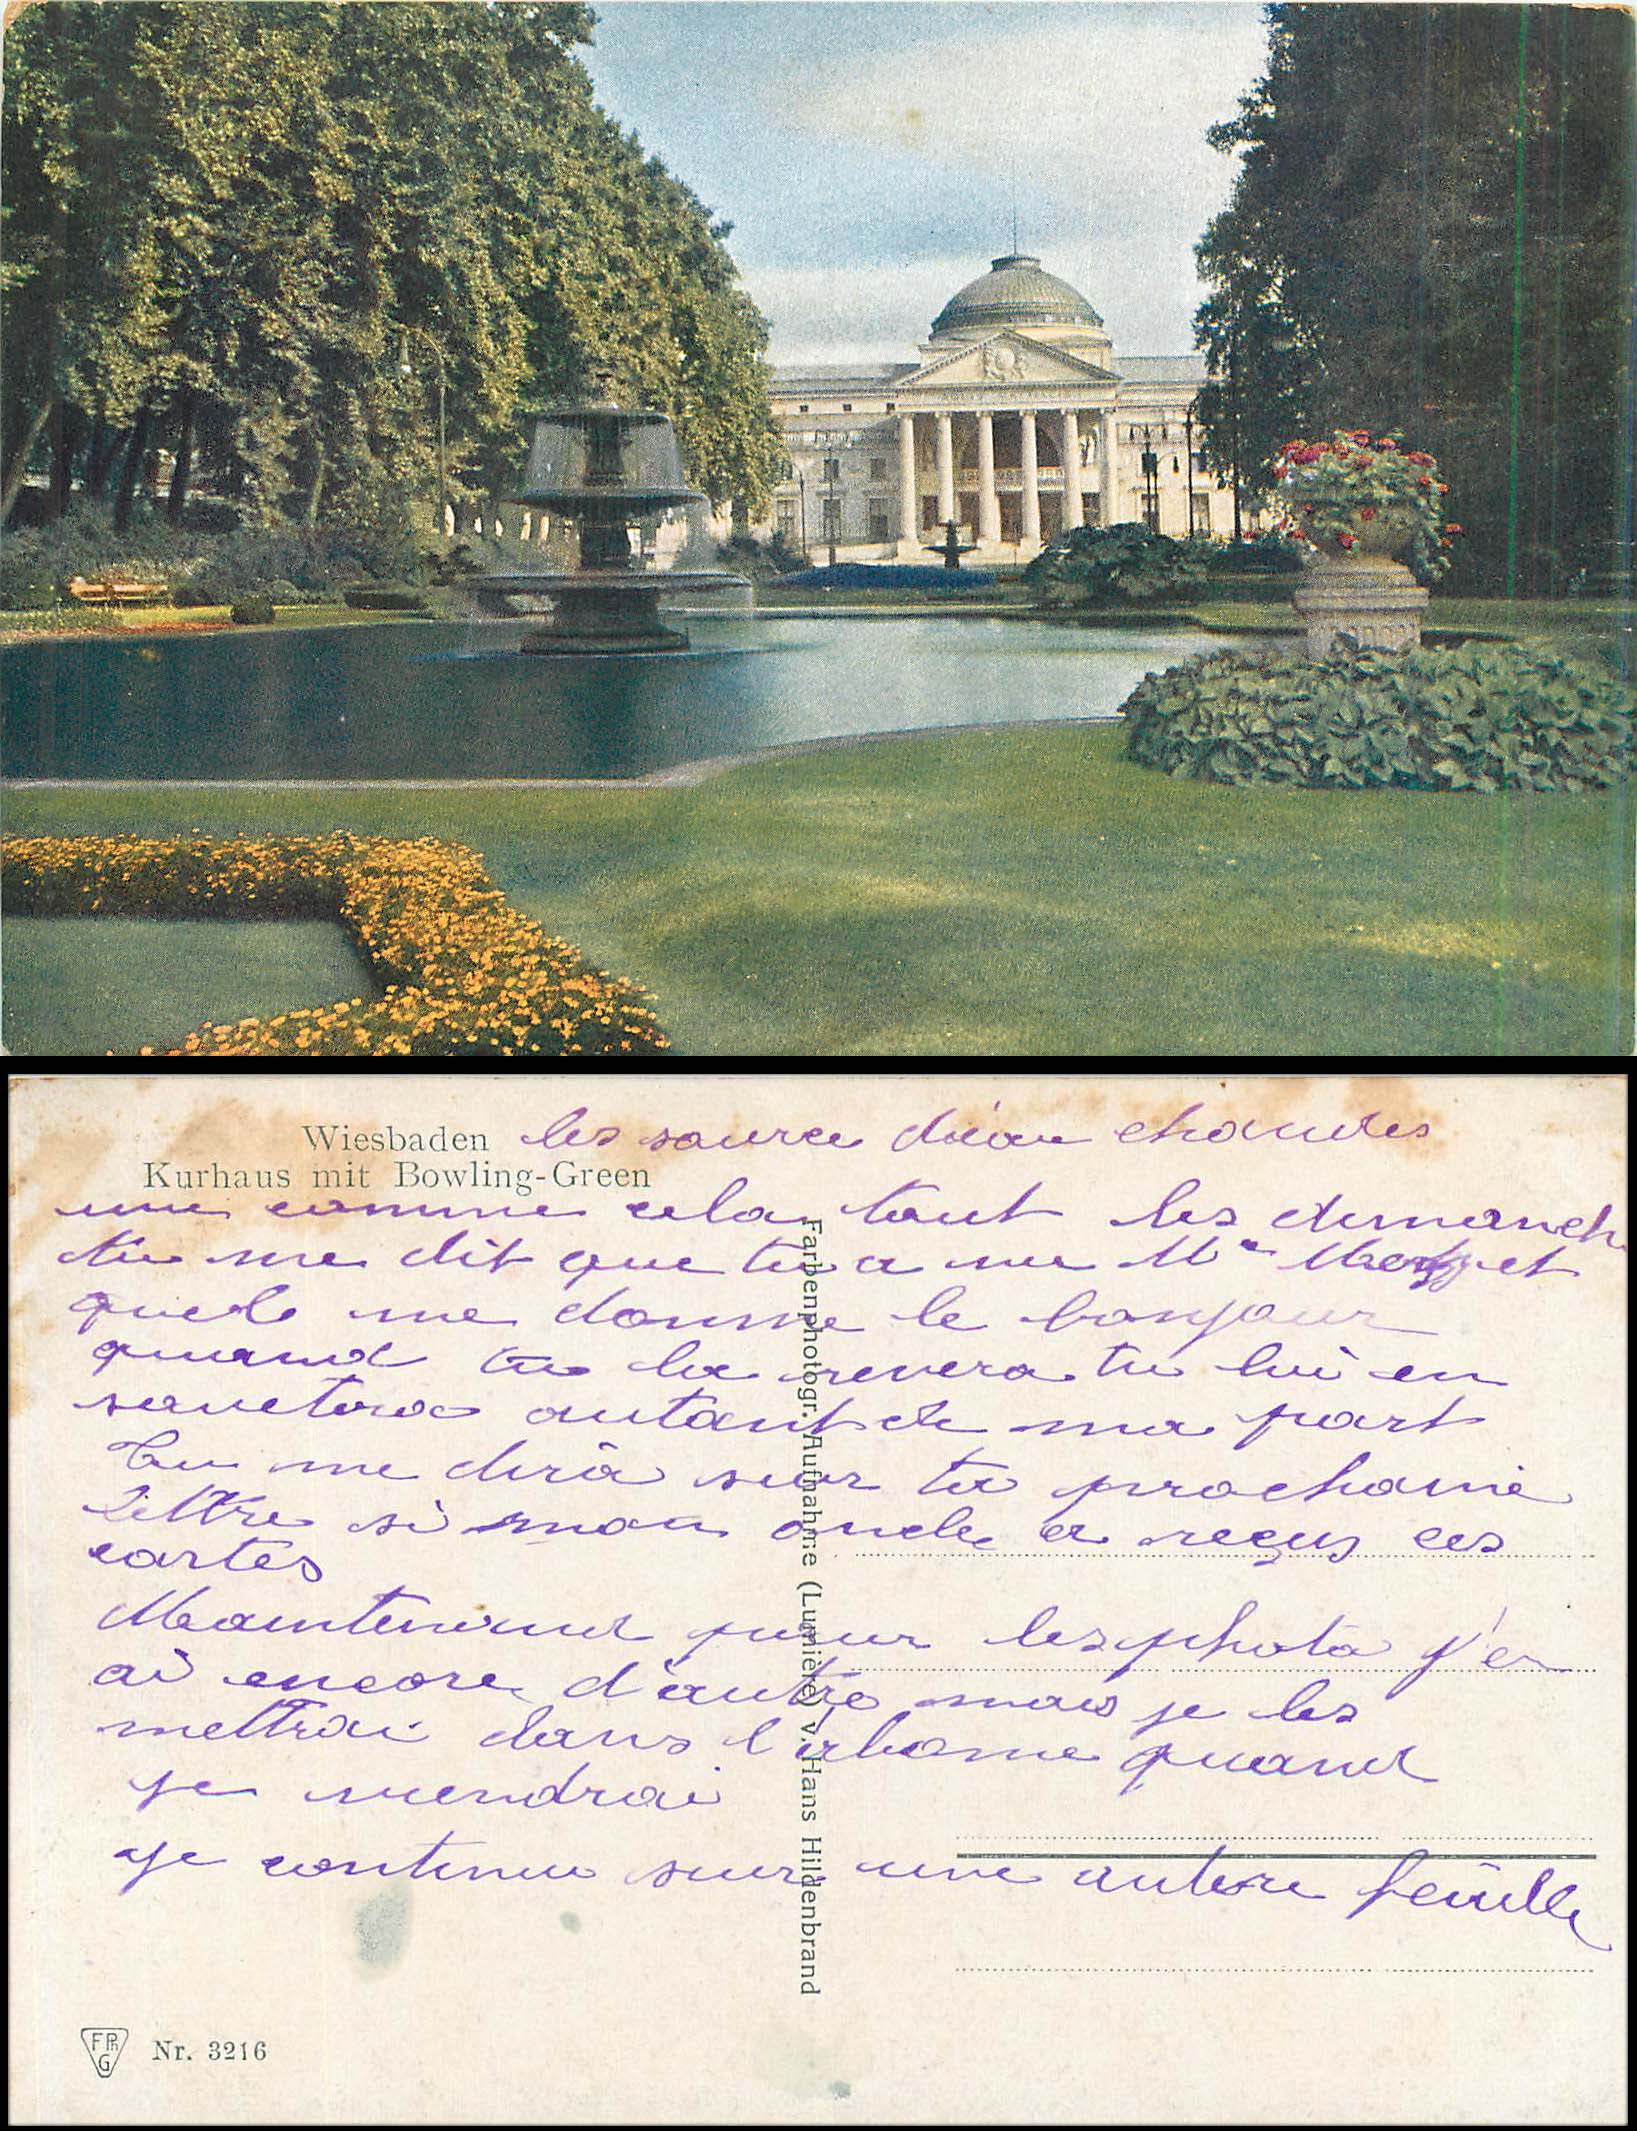 Wiesbaden
Kurhaus mit Bowling-Green
les source d'eau chaudes
une comme cela tout les dimanch
tu me dit que tu a vu Mme et
quele me donne le bonjour
quand tu la revera tu lui en
autant de ma part
Tu me dira sur ta prochaine
lettre si mon oncle a reçus ces
cartes
Maintenant pour les photo j'en
ai encore d'autre mais je les
mettrai dans l'albome quand
je viendrai
je continu sur une autre feuille
Farbenphotogr. Aufnahme (Lumière) v. Hans Hildenbrand
FPhG Nr. 3216